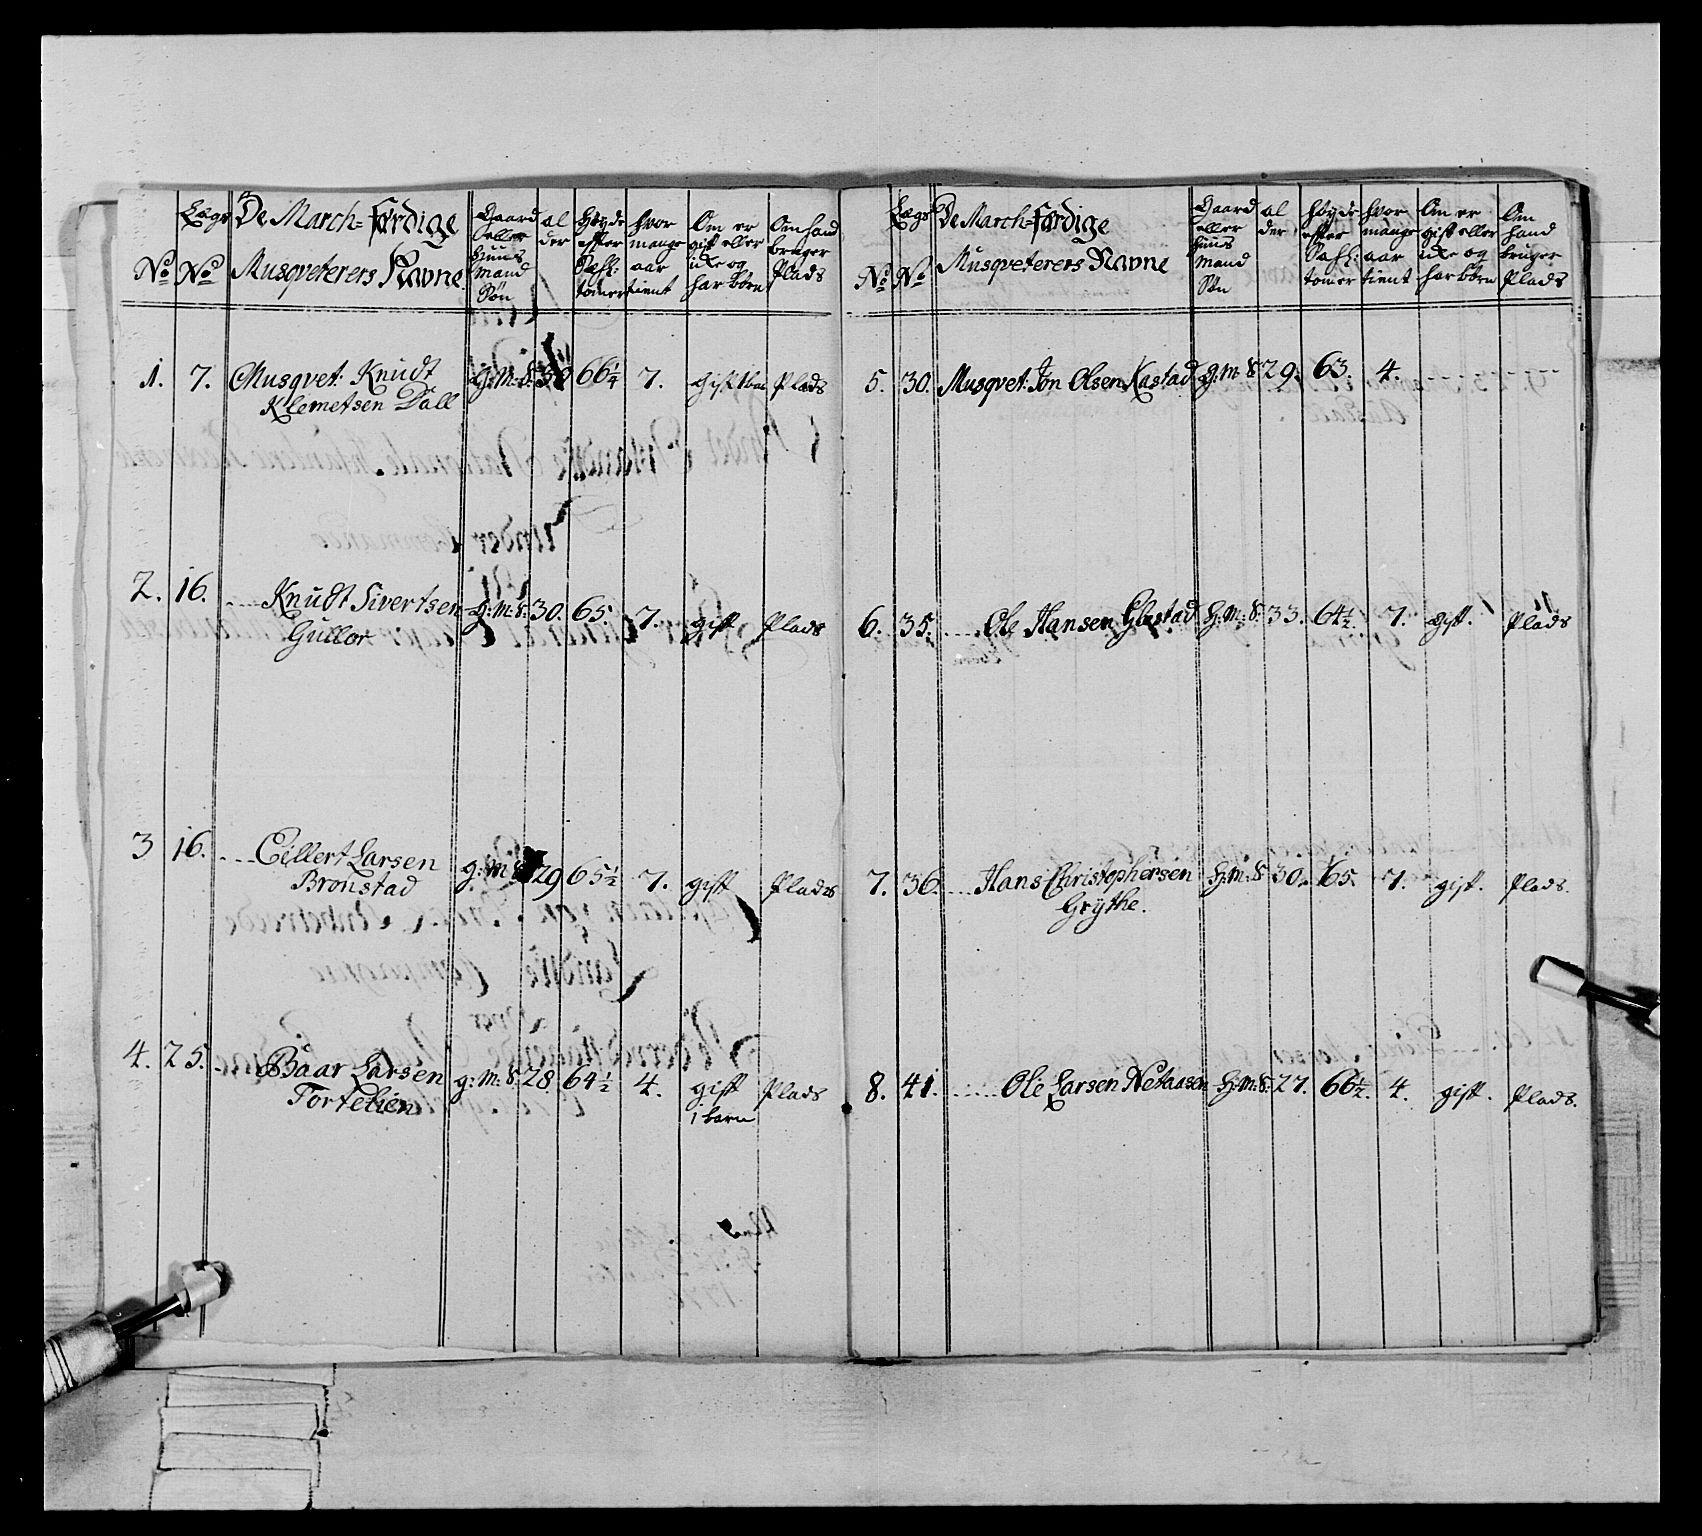 No
Lægs No
De March=Færdige Musqveterers Navne
Gaard eller Huus Mand Søn
al der
Høyde efter Sahl: tomer
hvor mange aar tient
Om er gift eller icke og har børn
Om hand bruger Plads
1. 7. Musqvet. Knudt g:M:S. 66¼ 7. gift 1 barn Plads
Klemetsen Dall
2. 16. .... Knudt Sivertsen g:M:S. 30. 65. 7. gift Plads
Gullor
3 16. .... Eillert Larsen g:M:S. 29 65½ 7. gift Plads
Bronstad
4. 25. .. Baar Larsen g:M:S. 28. 64½ 4. gift Plads
Fortelien 1 barn
No
Lægs No
De March=Færdige Musqveterers Navne
Gaard eller huus Mand Søn
al der
Høyde efter Sahl: tomer
hvor mange aar tient
Om er gift eller icke og har børn
Om hand bruger Plads
5. 30. Musqvet. Jon Olsen Kastad g:M:S. 29. 63. 4. - - - - - -
6. 35. .... Ole Hansen Glæstad H:M:S. 33. 64½. 7. gift. Plads
7. 36. .... Hans Christophersen H:M:S. 30. 65. 7. gift. Plads.
Grythe.
8. 41. ..... Ole Larsen Netaasen H:M:S. 27. 66½. 4. gift. Plads.